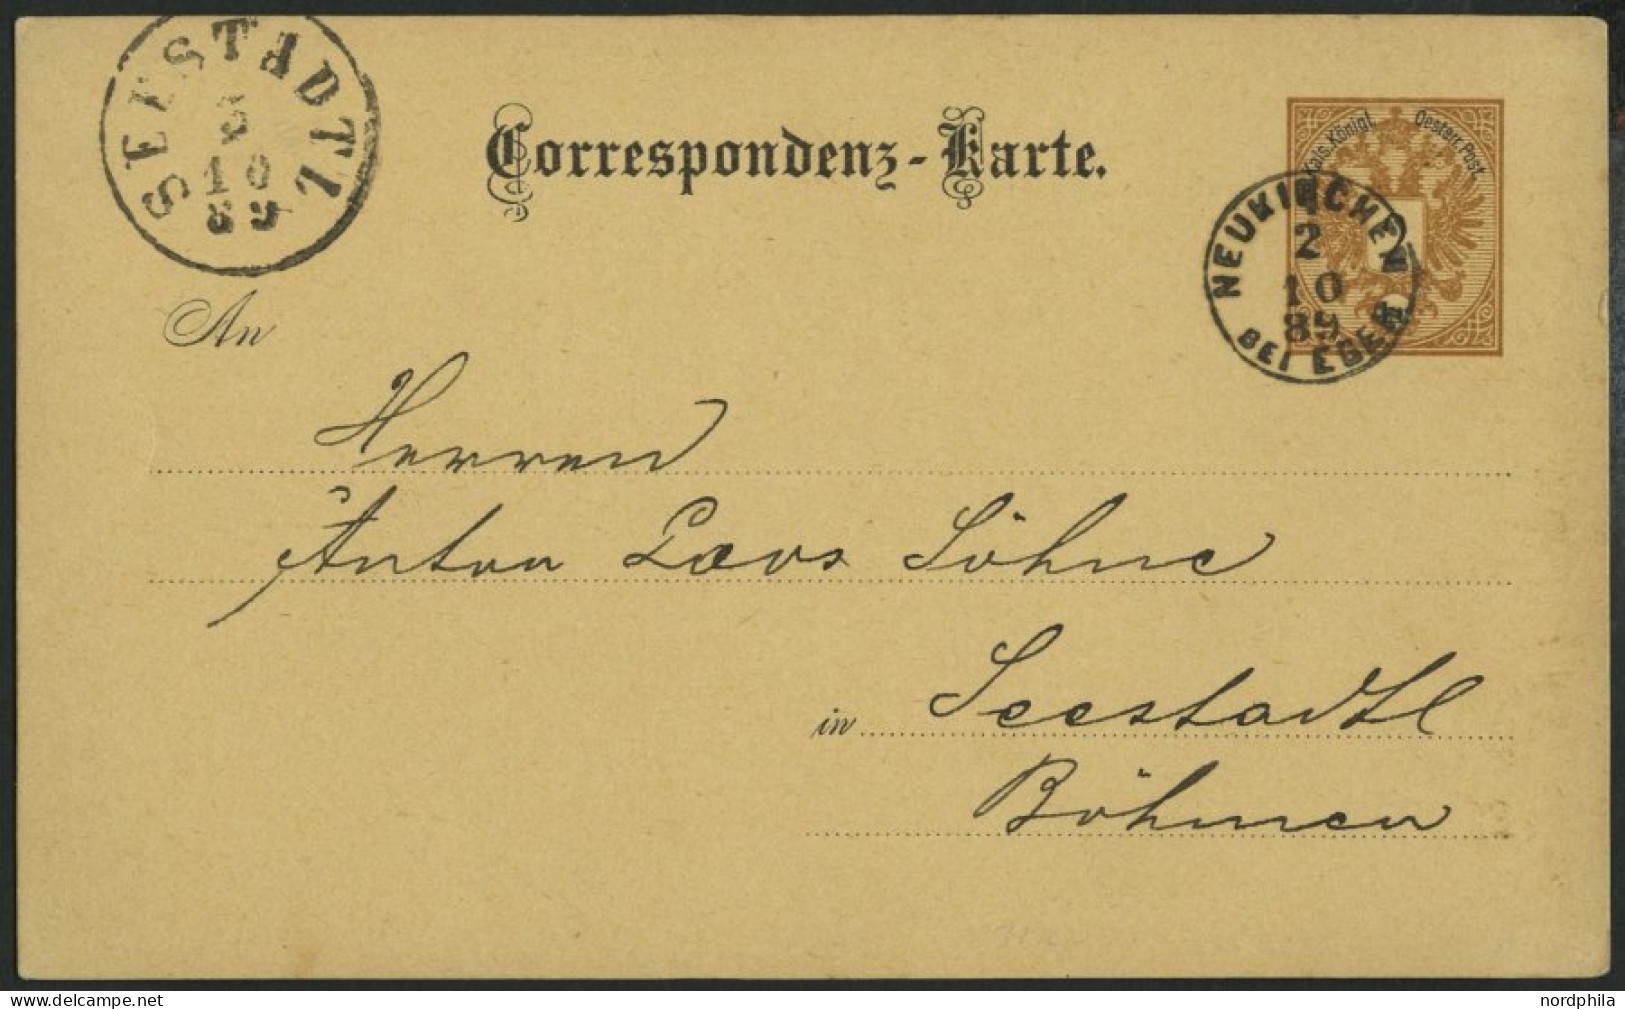 SEESTADTL
3
10
89
Correspondenz-Karte.
Kais. Königl. Oesterr. Post
2
NEUKIRCHEN
2
10
89
BEI EGER
An
Herren
Anton Loevs Söhne
in Seestadtl
Böhmen
nordphila